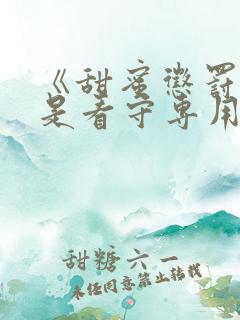 《甜蜜懲罰
是看守专用
甜糖六一
未经同意禁止转载